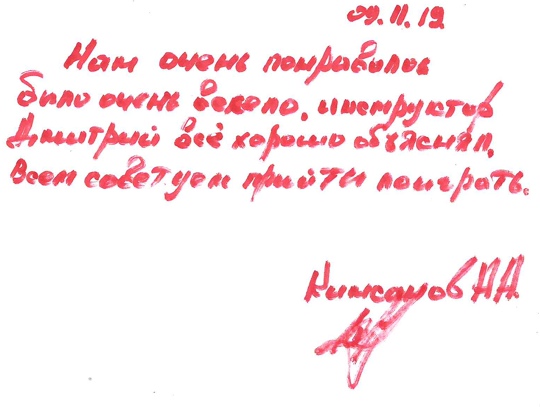 09.11.19
Нам очень понравилось
было очень весело, инструктор
Дмитрий всё хорошо объяснял.
Всем советуем прийти поиграть.
А.А.